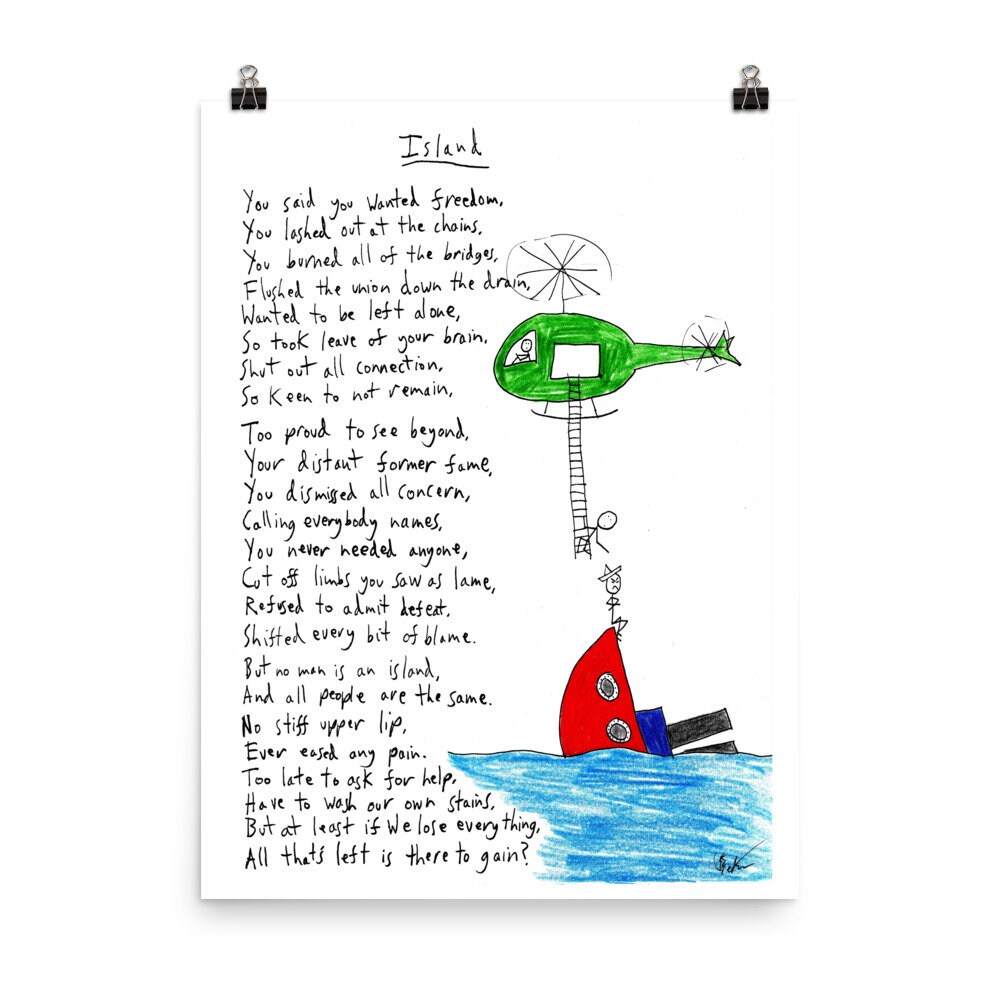 Island
You said you wanted freedom,
You lashed out at the chains,
You burned all of the bridges,
Flushed the union down the drain,
Wanted to be left alone,
So took leave of your brain,
Shut out all connection,
So keen to not remain,
Too proud to see beyond,
Your distant former fame,
You dismissed all concern,
Calling everybody names,
You never needed anyone,
Cut off limbs you saw as lame,
Refused to admit defeat,
Shifted every bit of blame.
But no man is an island,
And all people are the same.
No stiff upper lip,
Ever eased any pain.
Too late to ask for help,
Have to wash our own stains,
But at least if we lose everything,
All that's left is there to gain?